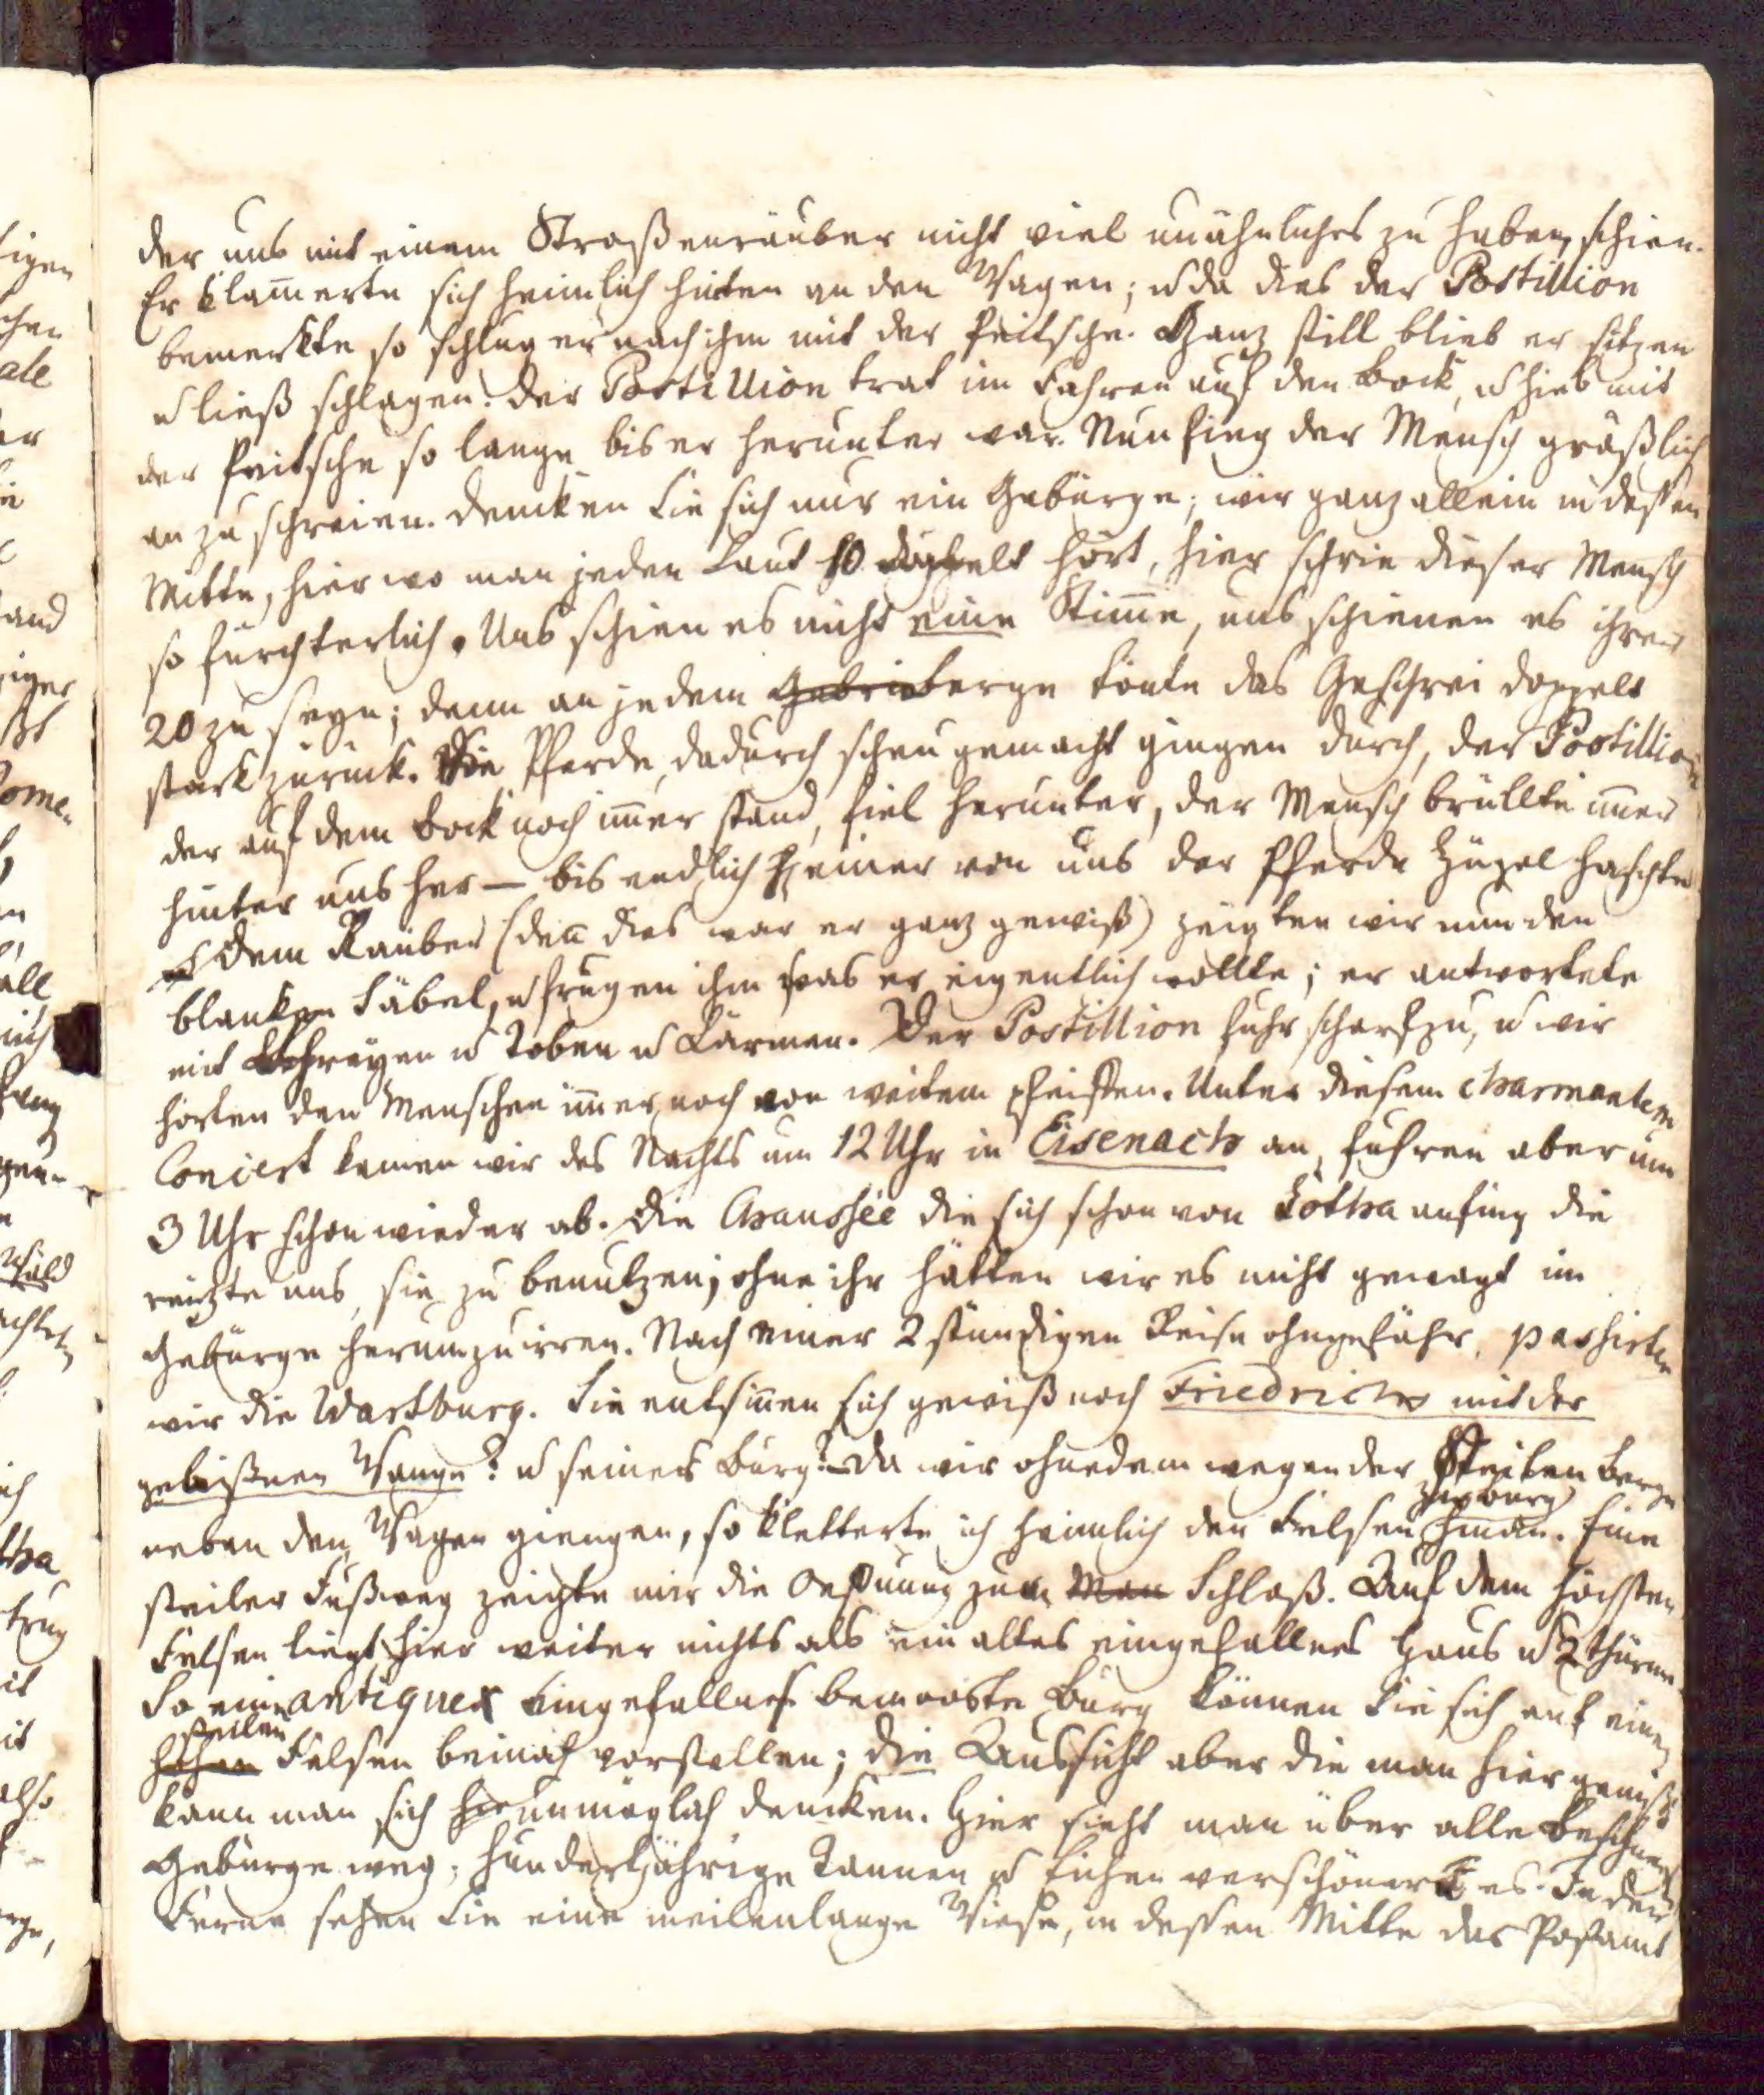 der uns mit einem Straßenräuber nicht viel unähnliches zu haben schien.
Er klam̄erte sich heimlich hinten an den Wagen; u da dies der Postillion
bemerkte so schlug er nach ihm mit der Peitsche. Ganz still blieb er sitzen
u ließ schlagen. Der Postillion trat im Fahren auf den Bock, u hieb mit
der Peitsche so lange bis er herunter war. Nun fing der Mensch gräßlich
an zu schreien. Dencken Sie sich nur ein Gebürge; wir ganz allein in deßen
Mitte, hier wo man jeden Laut 10 doppelt hört, hier schrie dieser Mensch
so fürchterlich. Uns schien es nicht eine Stim̄e, uns schienen es ihrer
20 zu seyn; denn an jedem berge tönte das Geschrei doppelt
stark zurück. Die Pferde, dadurch scheu gemacht gingen durch, der Postillion
der auf dem Bock noch im̄er stand, fiel herunter, der Mensch brüllte im̄er
hinter uns her — bis endlich einer von uns der Pferde Zügel haschte
Dem Räuber (den̄ dies war er ganz gewiß) zeigten wir nun den
blanken Säbel, u frugen ihm was er eigentlich wollte; er antwortete
mit Schreyen u Toben u Lärmen. Der Postillion fuhr scharf zu, u wir
hörten den Menschen im̄er noch von weitem pfeiffen. Unter diesem charmanten
Concert kamen wir des Nachts um 12 Uhr in Eisenach an, fuhren aber um
3 Uhr schon wieder ab. Die Chaussée die sich schon von Gotha anfing die
reizte uns, sie zu benutzen; ohne ihr hätten wir es nicht gewagt im
Gebürge herumzuirren. Nach einer 2 stündigen Reise ohngefähr, passirten
wir die Wartburg. Sie entsin̄en sich gewiß noch Friedrichs mit der
gebißnen Wange? u seiner Burg? – Da wir ohnedem wegen der Steilen Berge
neben den Wagen giengen, so kletterte ich heimlich den Felsen hinan. Eine
steiler Fußweg zeigte mir die Oefnung zum Schloß. Auf dem höchsten
Felsen liegt hier weiter nichts als ein altes eingefallnes Haus u 2 Thürme.
So eine antique eingefallne bemooste Burg können Sie sich auf einen
steilen
hohen Felsen beinah vorstellen; die Aussicht aber die man hier genißt
kann man sich unmöglich dencken. Hier sieht man über alle
Gebürge weg; hundertjährige Tannen u Eichen verschönert es. In der
Ferne sehen Sie eine meilenlange Wiese, in deßen Mitte das Postamt